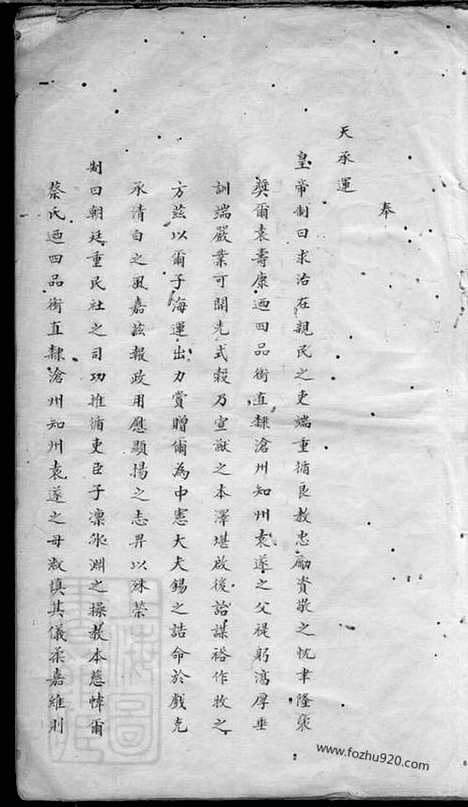 奉
天承運
皇帝制曰求治在親民之吏端重循良教忠勵資敬之忱聿隆褒
獎爾袁壽康迺四品銜直隸滄州知州袁遂之父禔躬湻厚垂
訓端嚴業可開先式穀乃宣猷之本澤堪啟後詒謀裕作牧之
方茲以爾子海運出力賞贈爾為中憲大夫錫之誥命於戲克
承清白之風嘉茲報政用慰顯揚之志昇以殊榮
制曰朝廷重民社之司功推循吏臣子凜冰淵之操教本慈幃爾
蔡氏迺四品銜直隸滄州知州袁遂之母淑慎其儀柔嘉維則
www.fozhu920.com